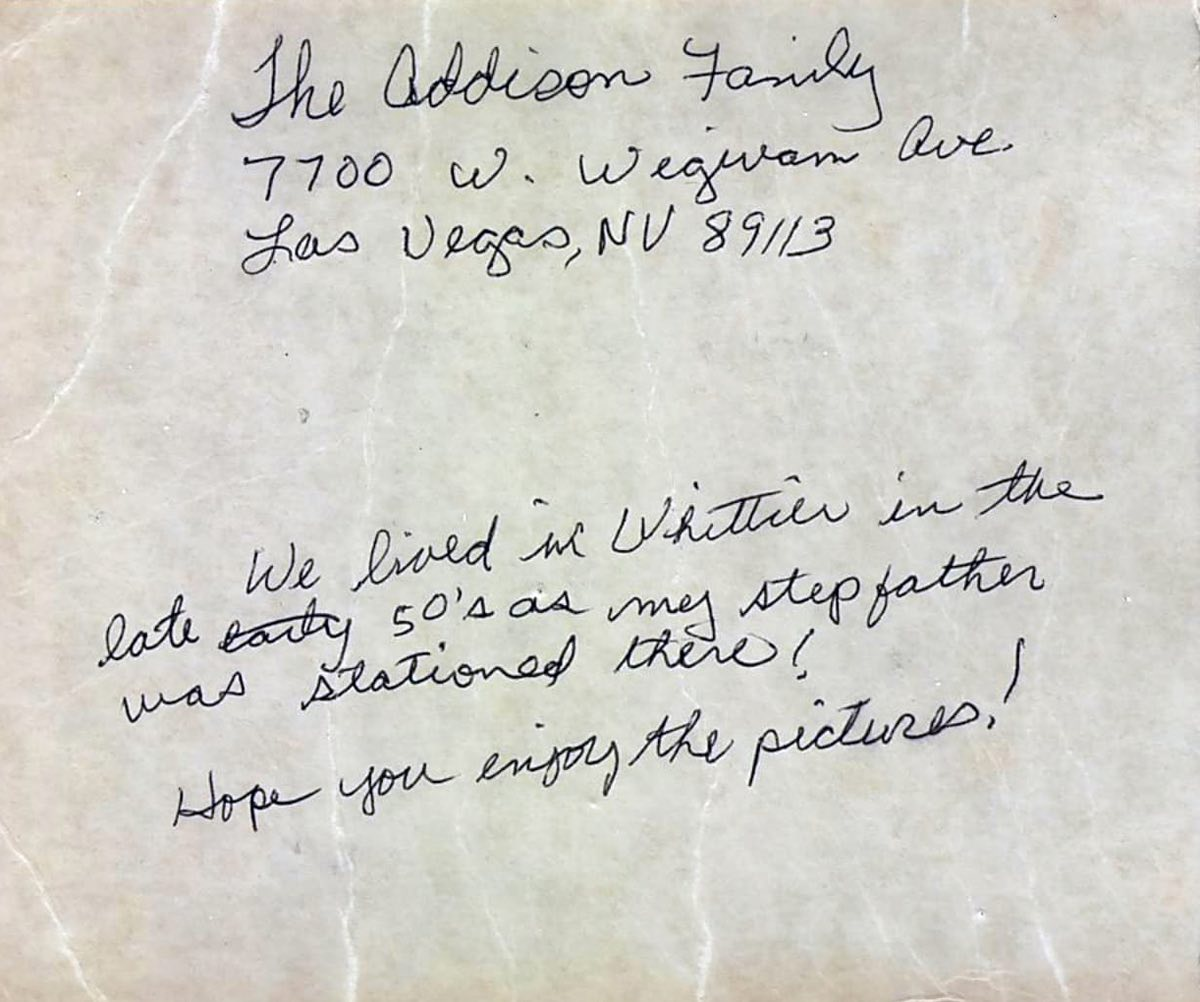 The Addison Family
7700 W. Wigwam Ave.
Las Vegas, NV 89113
We lived in Whittier in the
late early 50's as my stepfather
was stationed there!
Hope you enjoy the pictures!